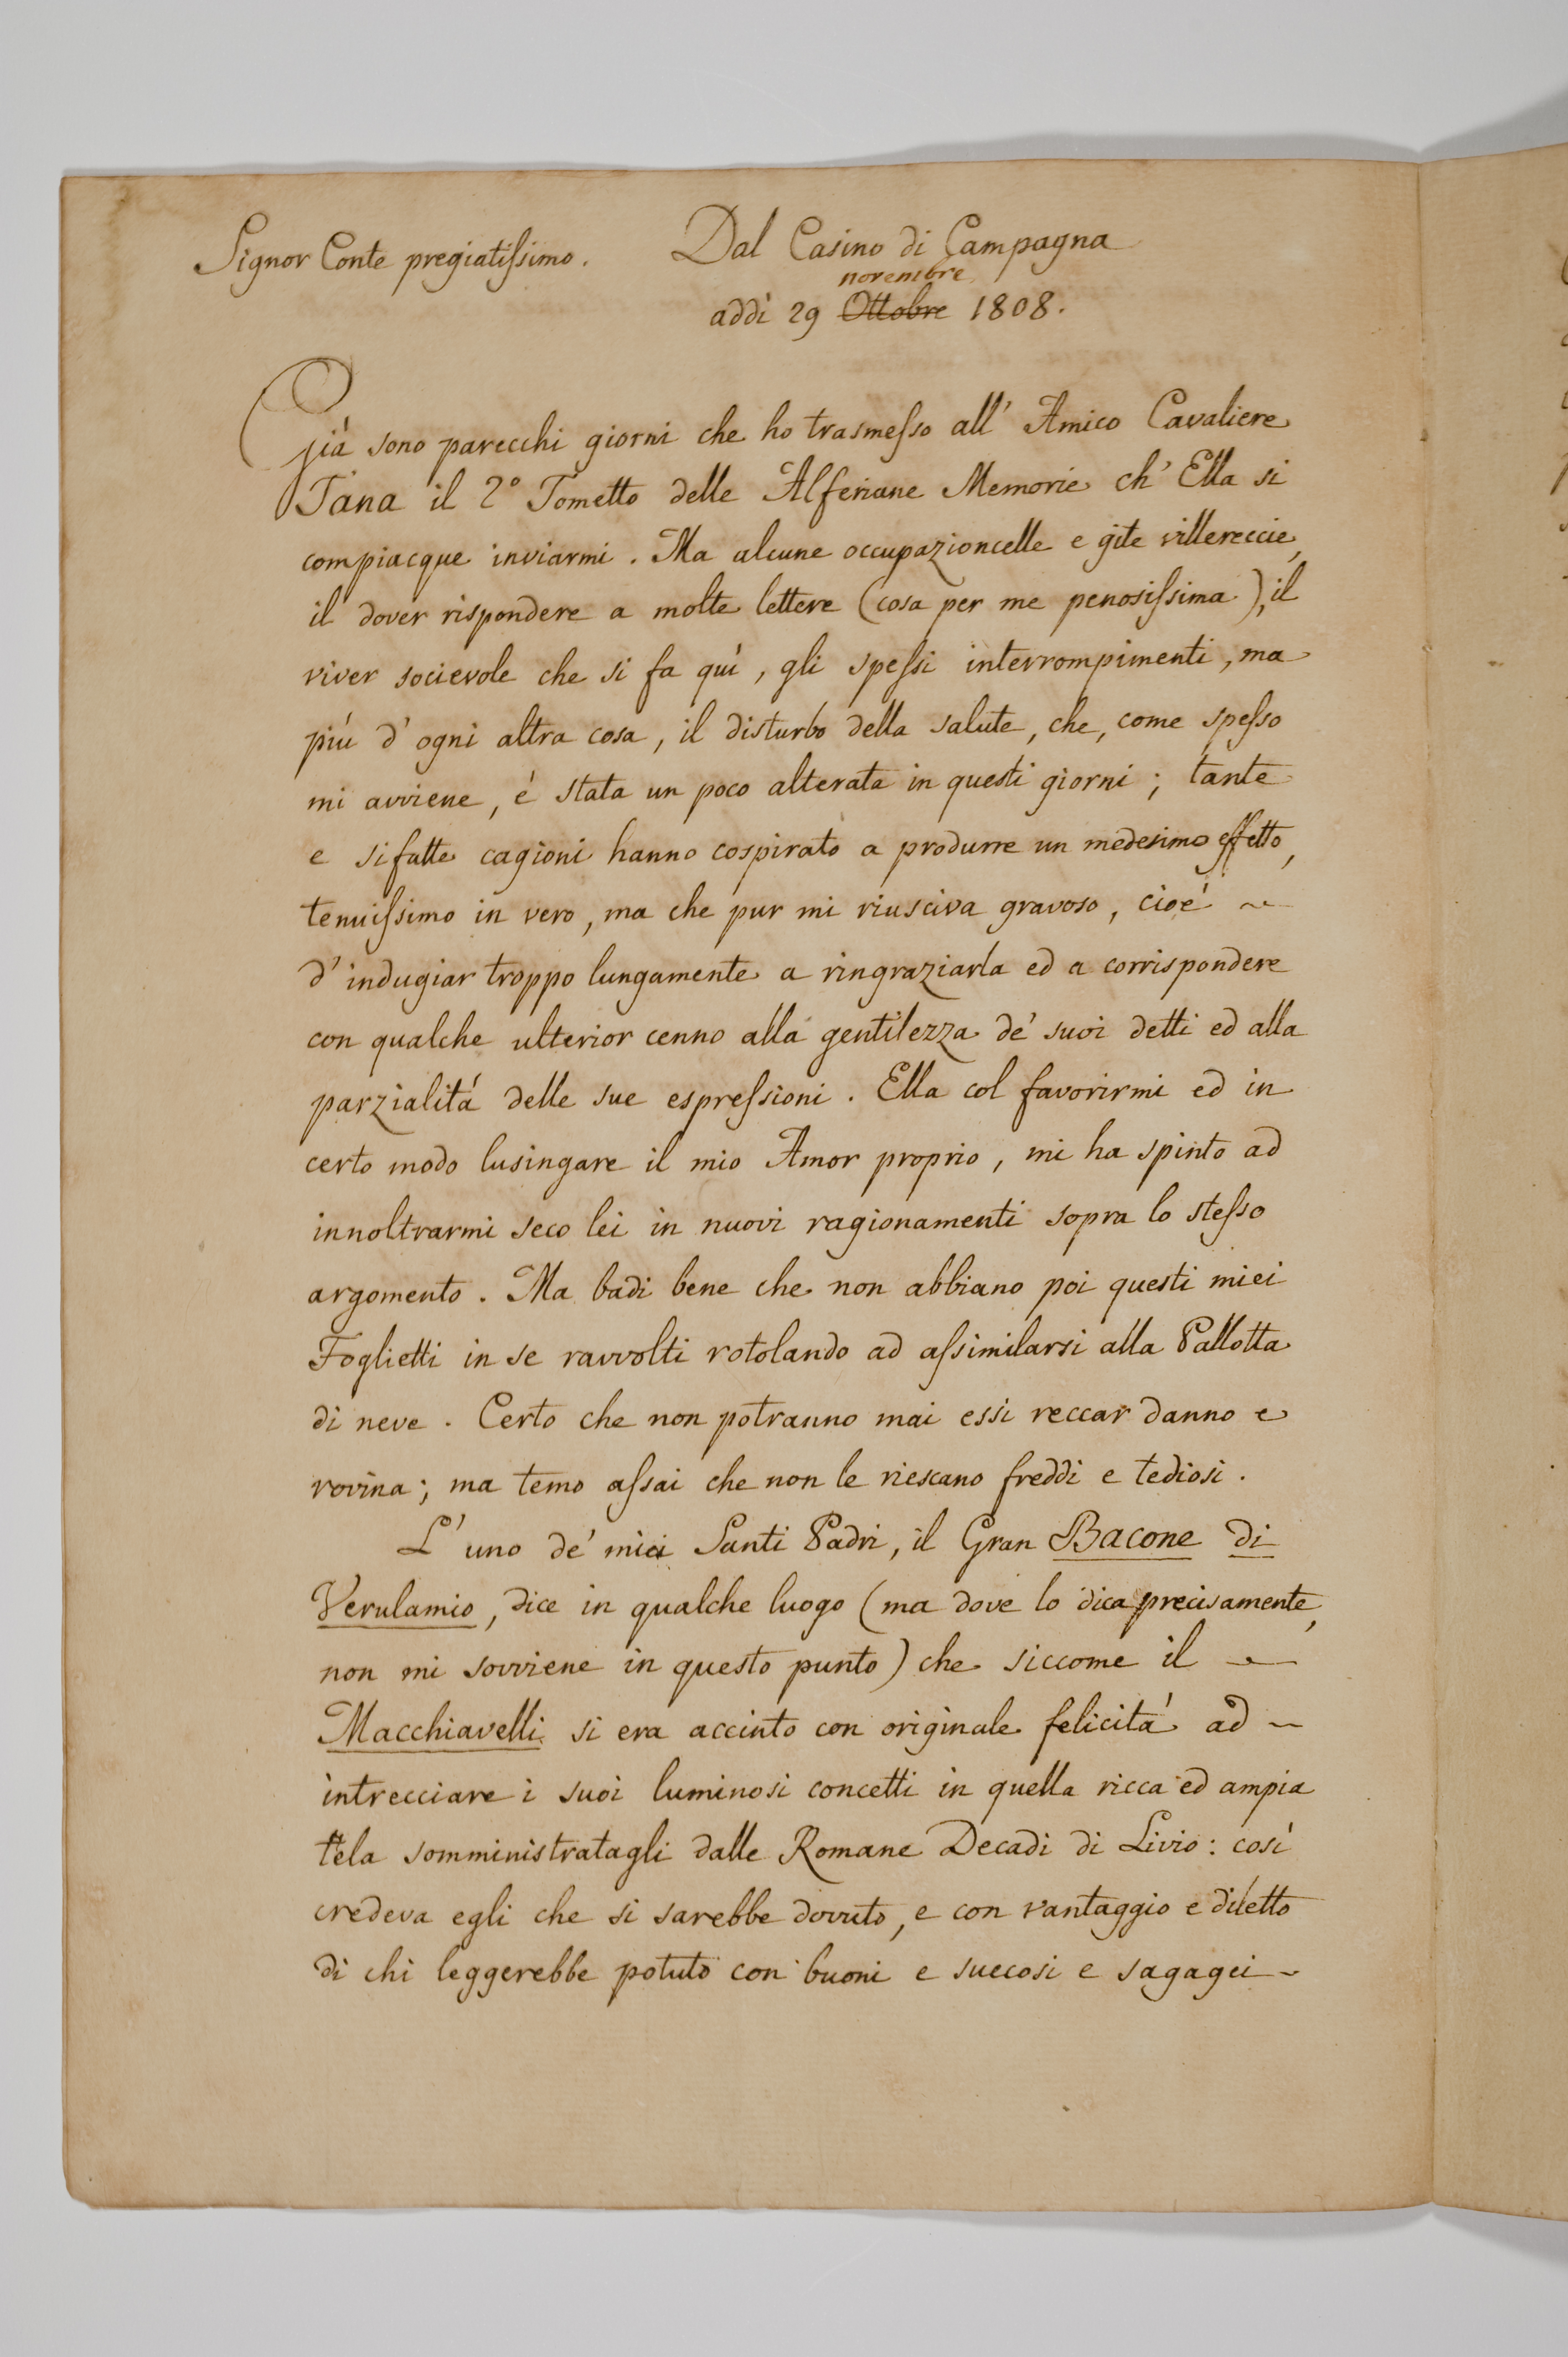 Signor Conte pregiatiſsimo.
Dal Casino di Campagna
novembre
addì 29 Ottobre 1808.
Già sono parecchi giorni che ho trasmeſso all' Amico Cavaliere
Tana il 2º Tometto delle Alferiane Memorie ch' Ella si
compiacque inviarmi. Ma alcune occupazioncelle e gite villereccie,
il dover rispondere a molte lettere (cosa per me penosiſsima), il
viver socievole che si fa quì, gli speſsi interrompimenti, ma
più d' ogni altra cosa, il disturbo della salute, che, come speſso
mi avviene, é stata un poco alterata in questi giorni; tante
e sifatte cagioni hanno cospirato a produrre un medesimo effetto,
tenuiſsimo in vero, ma che pur mi riusciva gravoso, cioé ~
d' indugiar troppo lungamente a ringraziarla ed a corrispondere
con qualche ulterior cenno alla gentilezza de' suoi detti ed alla
parzialitá delle sue espreſsioni. Ella col favorirmi ed in
certo modo lusingare il mio Amor proprio, mi ha spinto ad
innoltrarmi seco lei in nuovi ragionamenti sopra lo steſso
argomento. Ma badi bene che non abbiano poi questi miei
Foglietti in se ravvolti rotolando ad aſsimilarsi alla Pallotta
di neve. Certo che non potranno mai essi reccar danno e
rovina; ma temo aſsai che non le riescano freddi e tediosi.
L' uno de' miei Santi Padri, il Gran Bacone di
Verulamio, dice in qualche luogo (ma dove lo dica precisamente,
non mi sovviene in questo punto) che siccome il ~
Macchiavelli si era accinto con originale felicitá ad ~
intrecciare i suoi luminosi concetti in quella ricca ed ampia
tela somministratagli dalle Romane Decadi di Livio: così
credeva egli che si sarebbe dovuto, e con vantaggio e diletto
di chi leggerebbe potuto con buoni e succosi e sagagci ~